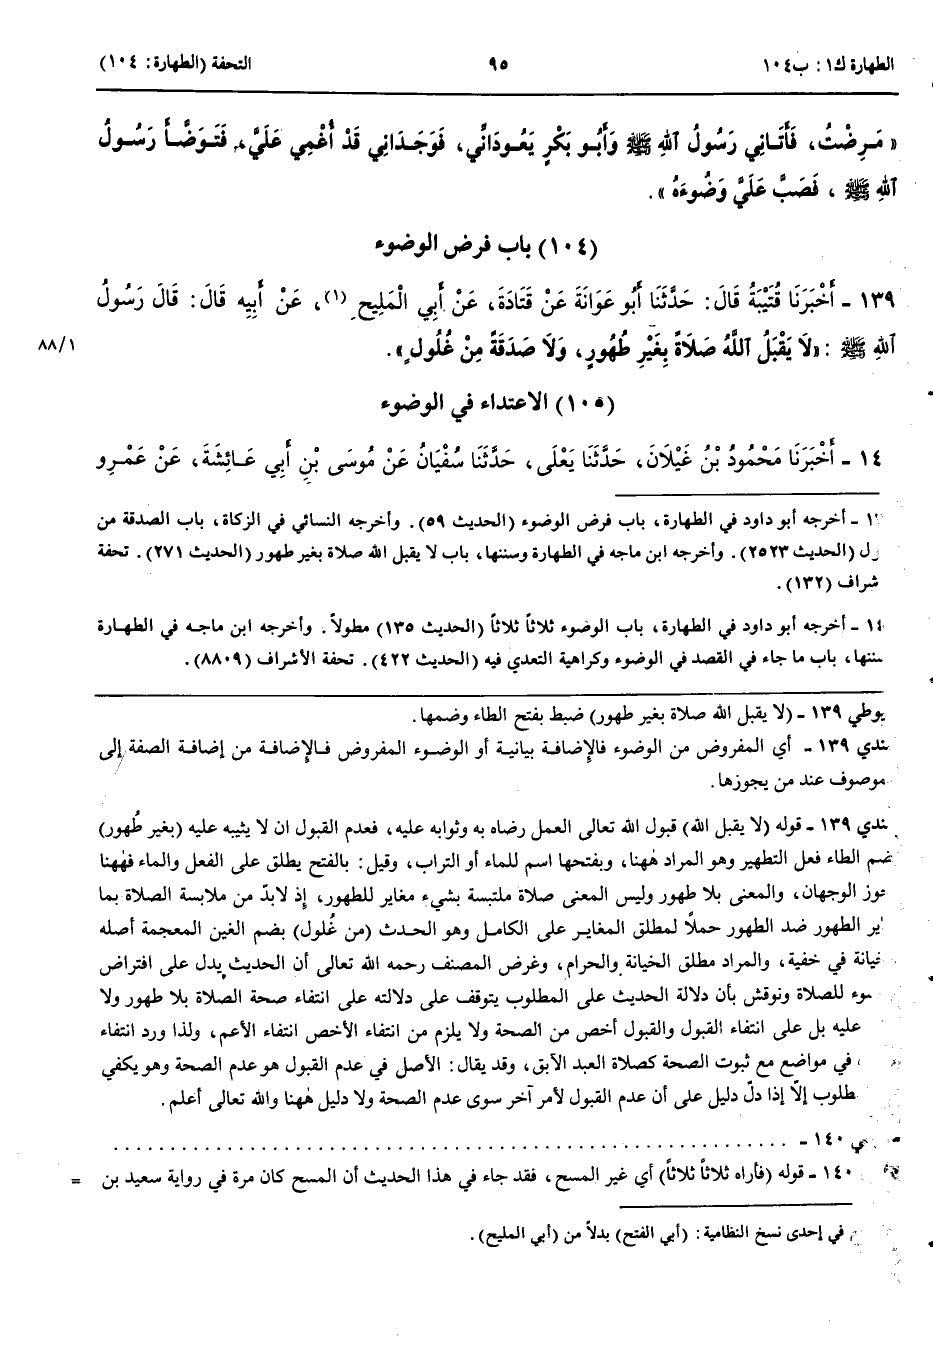 الطهارة ك١: ب١٠٤ ٩٥ التحفة (الطهارة: ١٠٤)
« مَرِضْتُ، فَأَتَانِي رَسُولُ ٱللهِ ﷺ وَأَبُو بَكْرٍ يَعُودَانِّي، فَوَجَدَانِي قَدْ أُغْمِي عَلَيَّ، فَتَوَضَّأَ رَسُولُ
ٱللهِ ﷺ ، فَصَبَّ عَلَيَّ وَضُوءَهُ ».
(١٠٤) باب فرض الوضوء
١٣٩ ـ أَخْبَرَنَا قُتَيْبَةُ قَالَ: حَدَّثَنَا أَبُو عَوَانَةَ عَنْ قَتَادَةَ، عَنْ أَبِي الْمَلِيحِ (١)، عَنْ أَبِيهِ قَالَ: قَالَ رَسُولُ
ٱللهِ ﷺ : «لَا يَقْبَلُ ٱللَّهُ صَلَاةً بِغَيْرِ طُهُورٍ، وَلَا صَدَقَةً مِنْ غُلُولٍ».
٨٨/١
(١٠٥) الاعتداء في الوضوء
١٤ ـ أَخْبَرَنَا مَحْمُودُ بْنُ غَيْلَانَ، حَدَّثَنَا يَعْلَى، حَدَّثَنَا سُفْيَانُ عَنْ مُوسَى بْنِ أَبِي عَائِشَةَ، عَنْ عَمْرِو
ـ أخرجه أبو داود في الطهارة، باب فرض الوضوء (الحديث ٥٩). وأخرجه النسائي في الزكاة، باب الصدقة من
(الحديث ٢٥٢٣). وأخرجه ابن ماجه في الطهارة وسننها، باب لا يقبل الله صلاة بغير طهور (الحديث ٢٧١). تحفة
شراف (١٣٢).
١٤ ـ أخرجه أبو داود في الطهارة، باب الوضوء ثلاثاً ثلاثاً (الحديث ١٣٥) مطولاً. وأخرجه ابن ماجه في الطهارة
سننها، باب ما جاء في القصد في الوضوء وكراهية التعدي فيه (الحديث ٤٢٢). تحفة الأشراف (٨٨٠٩).
يوطي ١٣٩ ـ (لا يقبل الله صلاة بغير طهور) ضبط بفتح الطاء وضمها.
ندي ١٣٩ ـ أي المفروض من الوضوء فالإضافة بيانية أو الوضوء المفروض فالإضافة من إضافة الصفة إلى
موصوف عند من يجوزها.
ندي ١٣٩ ـ قوله (لا يقبل الله) قبول الله تعالى العمل رضاه به وثوابه عليه، فعدم القبول ان لا يثيبه عليه (بغير طُهور)
ضم الطاء فعل التطهير وهو المراد هٰهنا، وبفتحها اسم للماء أو التراب، وقيل: بالفتح يطلق على الفعل والماء فهٰهنا
وز الوجهان، والمعنى بلا طهور وليس المعنى صلاة ملتبسة بشيء مغاير للطهور، إذ لابدّ من ملابسة الصلاة بما
ير الطهور ضد الطهور حملاً لمطلق المغاير على الكامل وهو الحدث (من غُلول) بضم الغين المعجمة أصله
يانة في خفية، والمراد مطلق الخيانة والحرام، وغرض المصنف رحمه الله تعالى أن الحديث يدل على افتراض
وء للصلاة ونوقش بأن دلالة الحديث على المطلوب يتوقف على دلالته على انتفاء صحة الصلاة بلا طهور ولا
عليه بل على انتفاء القبول والقبول أخص من الصحة ولا يلزم من انتفاء الأخص انتفاء الأعم، ولذا ورد انتفاء
في مواضع مع ثبوت الصحة كصلاة العبد الآبق، وقد يقال: الأصل في عدم القبول هو عدم الصحة وهو يكفي
طلوب إلّا إذا دلّ دليل على أن عدم القبول لأمر آخر سوى عدم الصحة ولا دليل هٰهنا والله تعالى أعلم.
ي ١٤٠ ـ ..............................
١٤٠ ـ قوله (فأراه ثلاثاً ثلاثاً) أي غير المسح، فقد جاء في هذا الحديث أن المسح كان مرة في رواية سعيد بن =
في إحدى نسخ النظامية: (أبي الفتح) بدلاً من (أبي المليح).